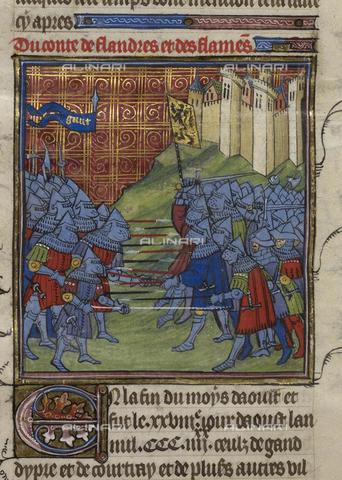 cy apres
Du conte de flandres et des flamens
ALINARI
gaut
ALINARI
ALINARI
En la fin du moys daoust et
fut le .xxviiie. jour daoust lan
mil. CCC. iiii. ceulz de gand
dypre et de courtray et de plusrs autres vil